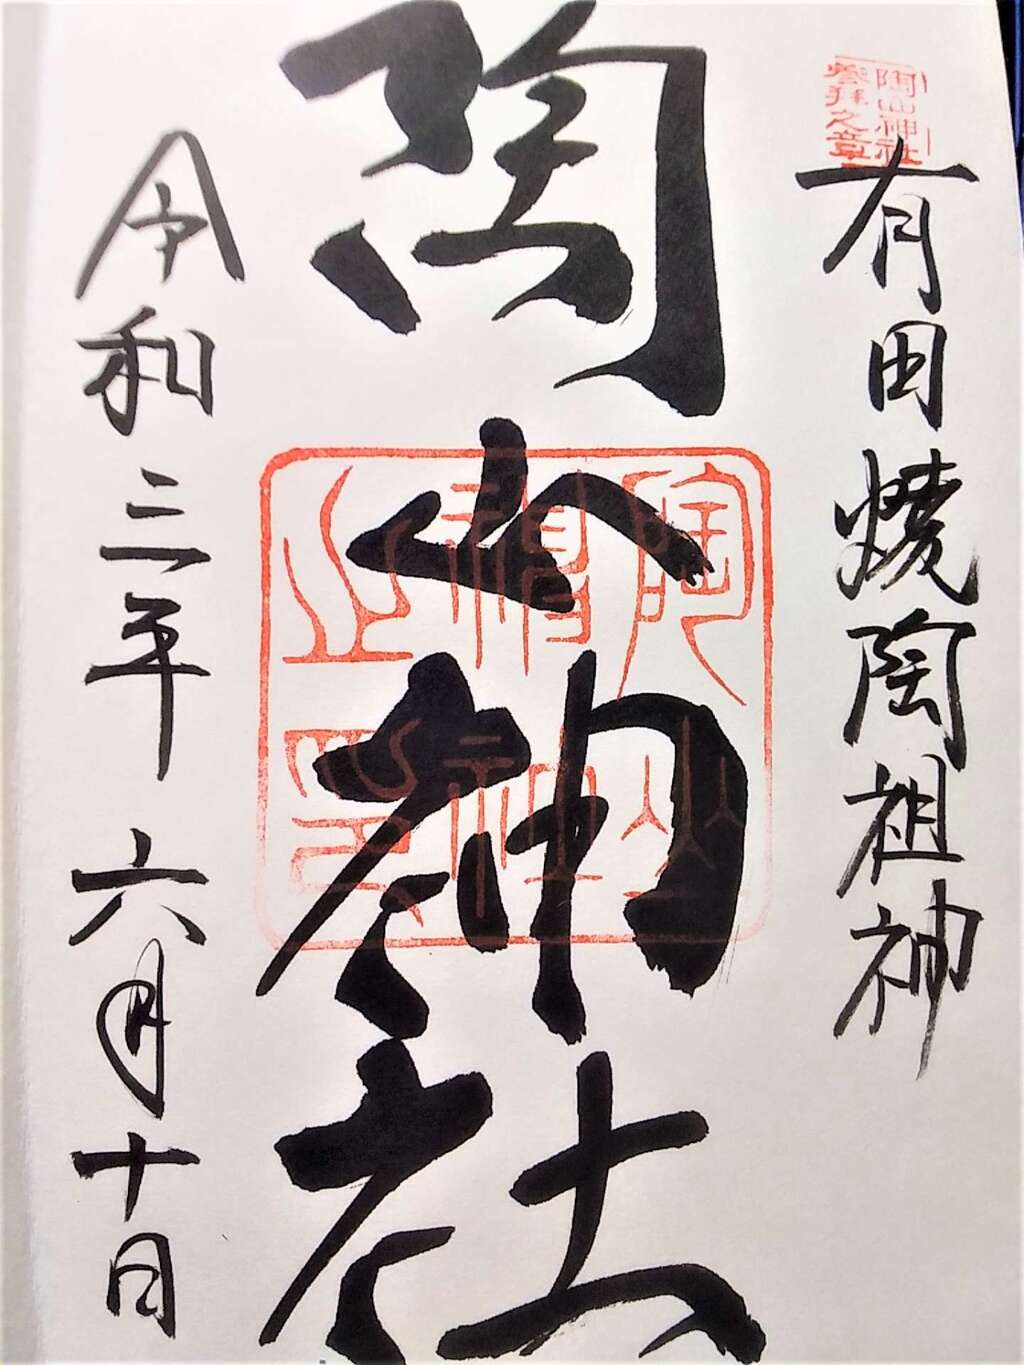 陶山神社
参拝之章
有田焼陶祖神
陶山神社
令和三年六月十日